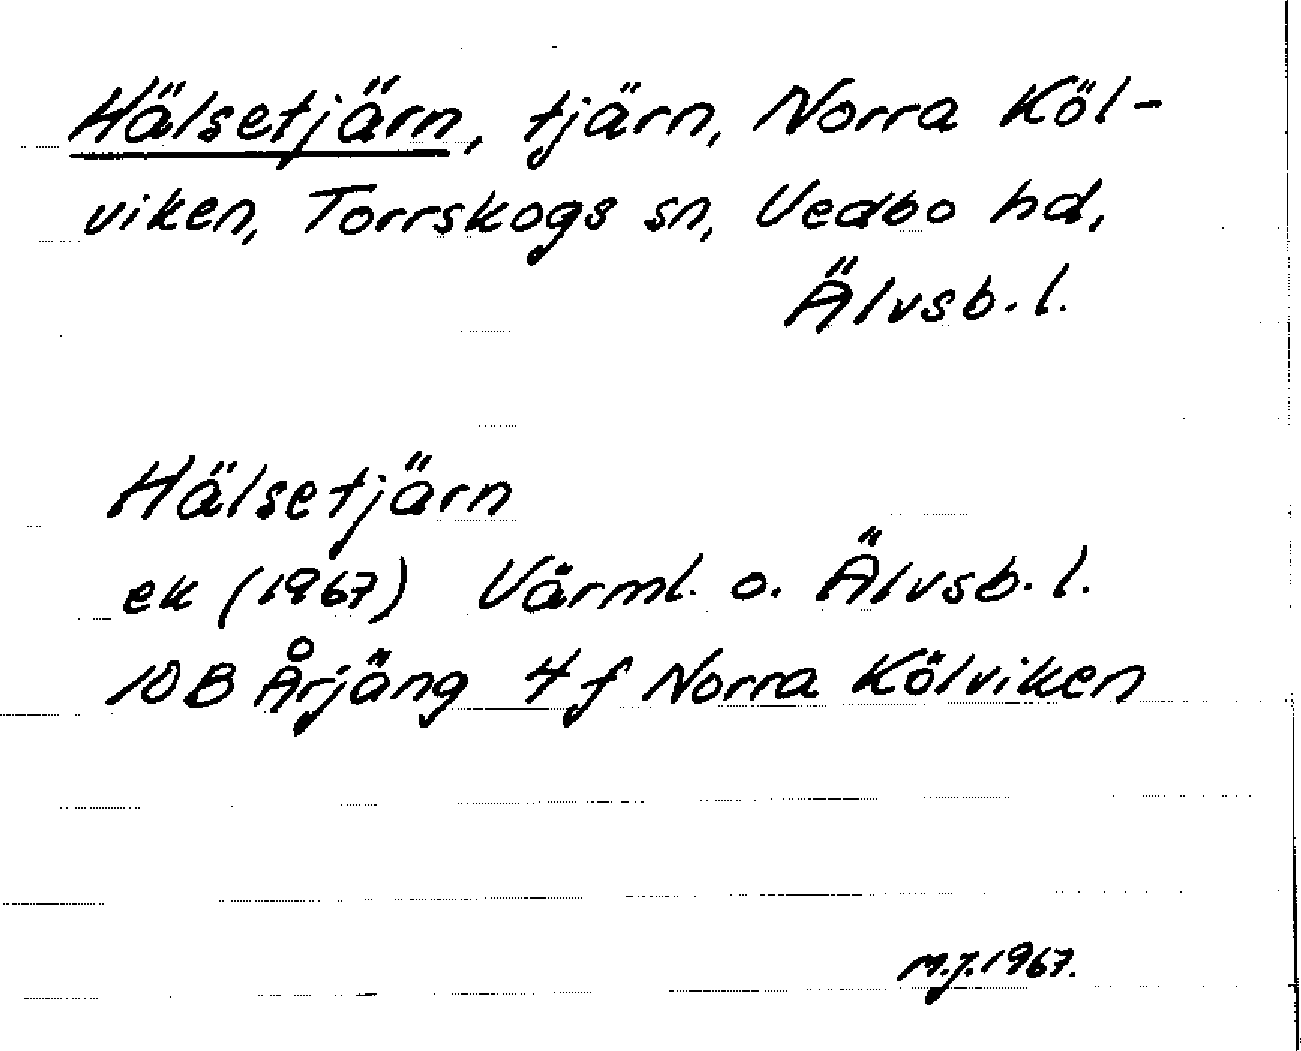 Hälsetjärn, tjärn, Norra Köl-
viken, Torrskogs sn, Vedbo hd,
Älvsb. l.
Hälsetjärn
ek (1967) Värml. o. Älvsb. l.
10B Årjäng 4f Norra Kölviken
M.J. 1967.